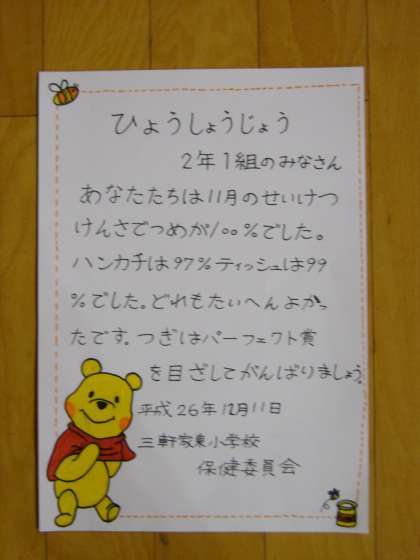 ひょうしょうじょう
2年1組のみなさん
あなたたちは11月のせいけつ
けんさでつめが100%でした。
ハンカチは97%ティッシュは99
%でした。どれもたいへんよかっ
たです。つぎはパーフェクト賞
を目ざしてがんばりましょう。
平成26年12月11日
三軒家東小学校
保健委員会